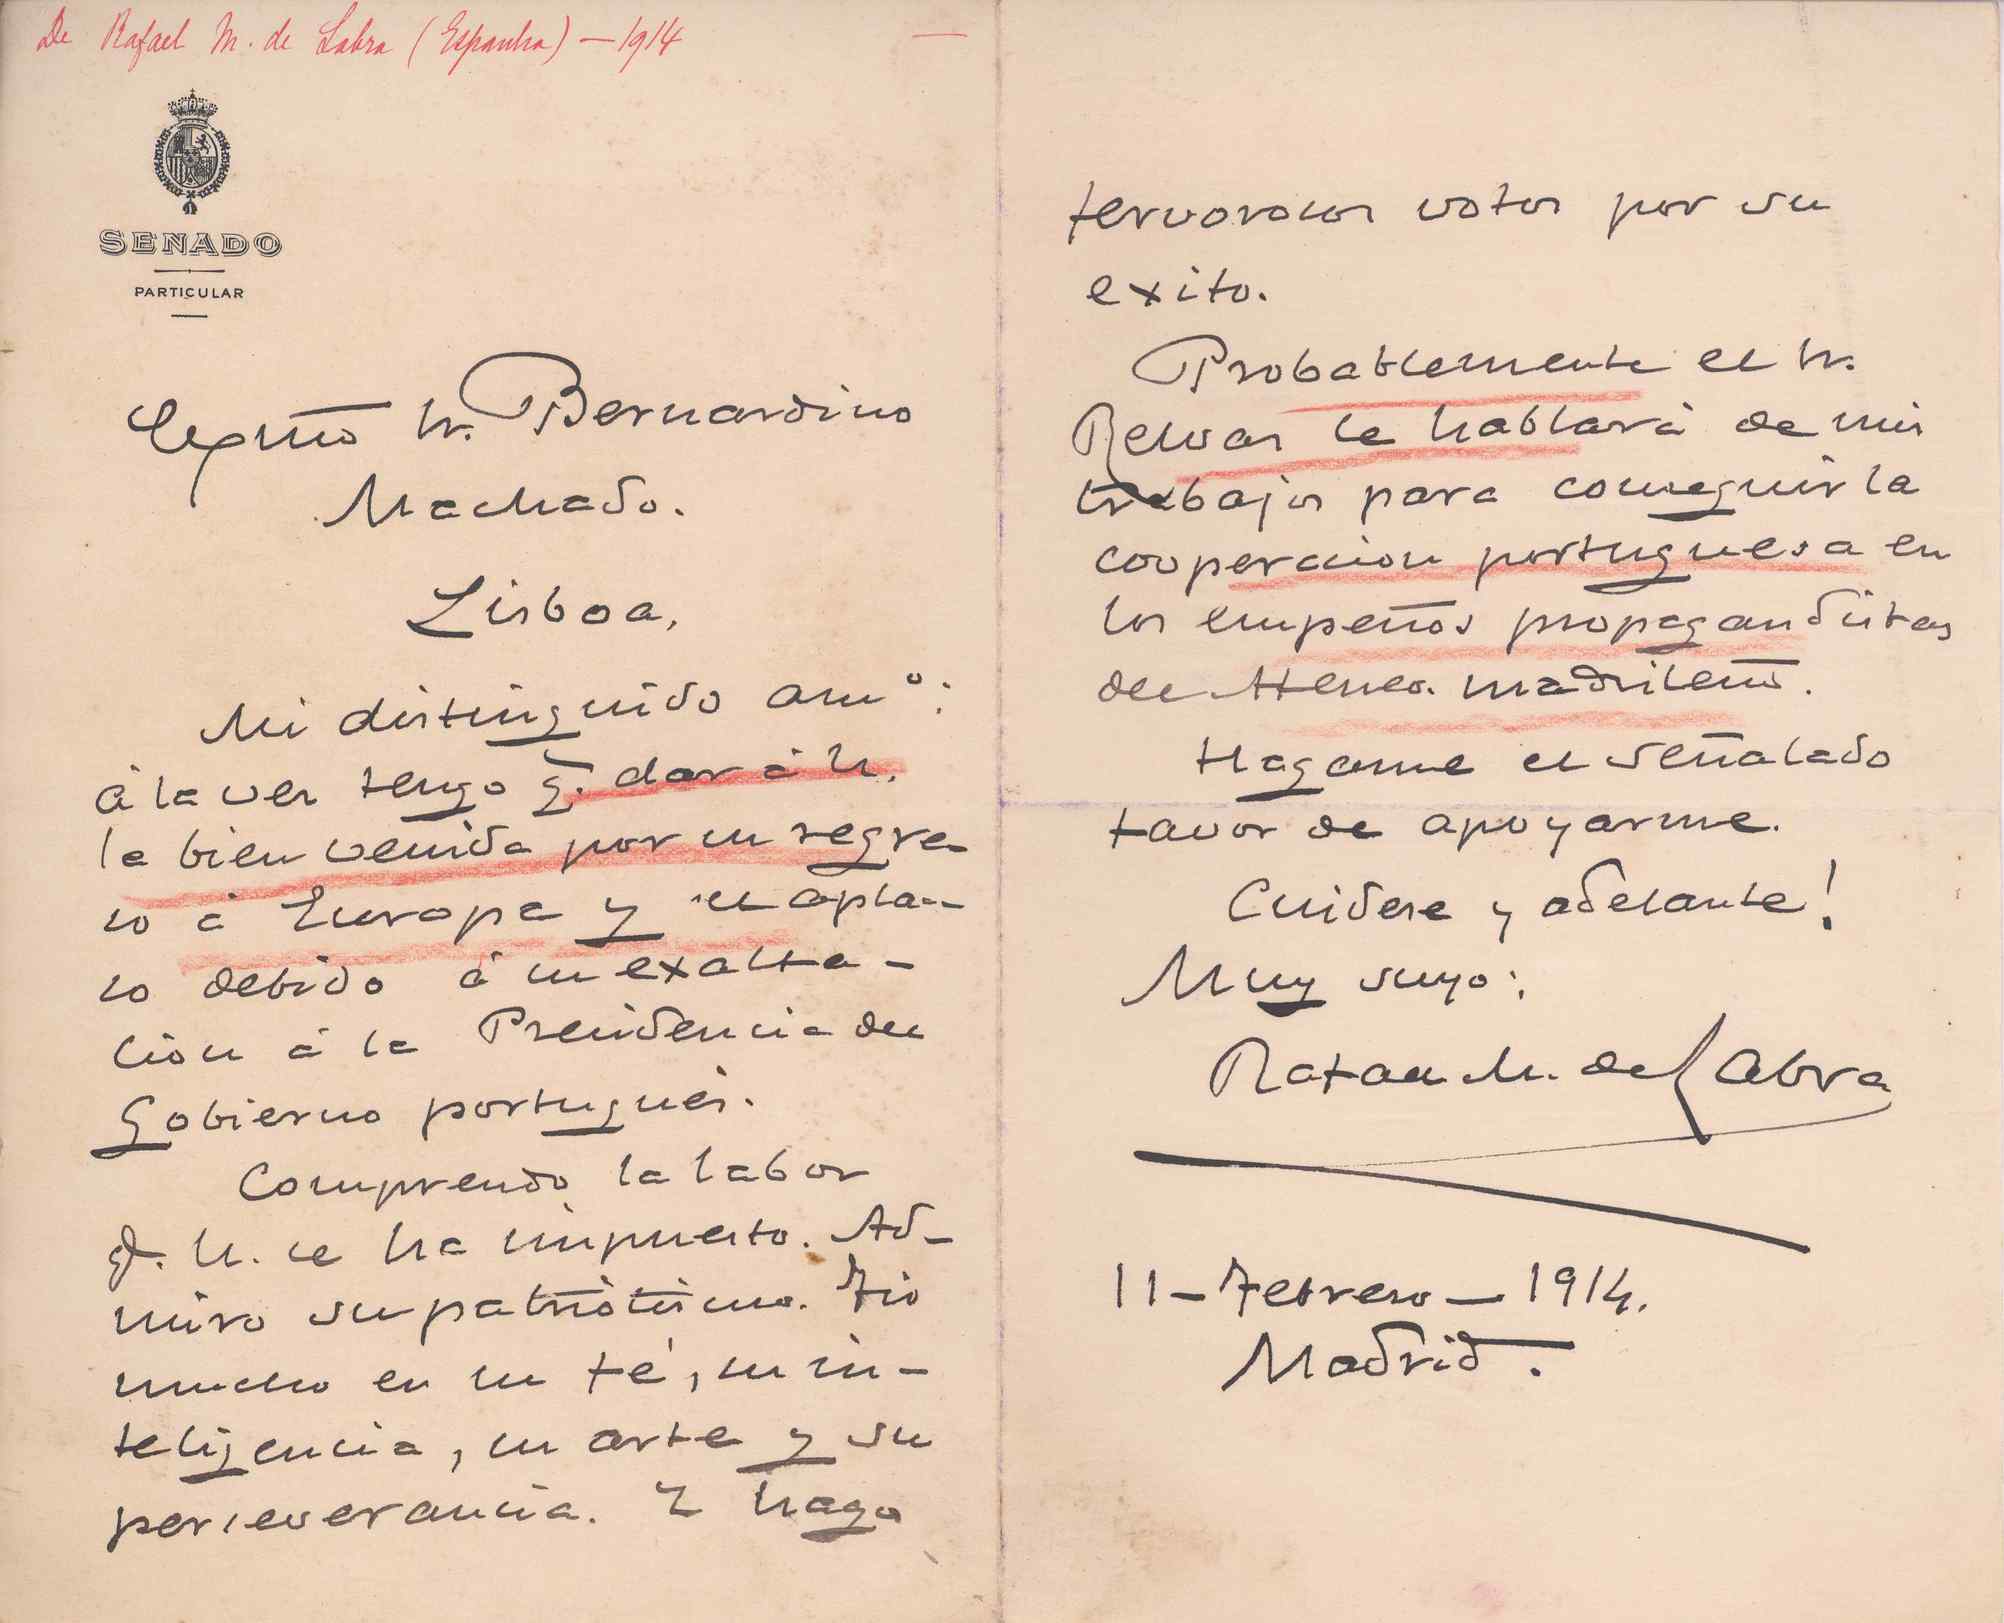 De Rafael M. de Labra (Espanha) — 1914 —
SENADO
PARTICULAR
Exmo Sr. Bernardino
Machado.
Lisboa,
Mi distinguido amo:
á la vez tengo q. dar á V.
la bien venida por su regre-
so á Europa y el aplau-
so debido á su exalta-
cion á la Presidencia del
Gobierno portugués.
Comprendo la labor
q. V. se ha impuesto. Ad-
miro su patriotismo. Fio
mucho en su fé, su in-
teligencia, su arte y su
perseverancia. Y hago
fervorosos votos por su
exito.
Probablemente el Sr.
Relvas le hablará de mis
trabajos para conseguir la
cooperacion portuguesa en
los empeños propagandistas
del Ateneo madrileño.
Hagame el señalado
favor de apoyarme.
Cuidese y adelante!
Muy suyo:
Rafael M. de Labra
11 — Febrero — 1914.
Madrid.